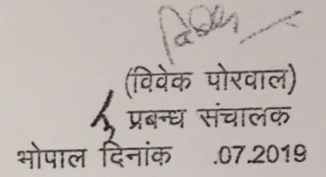 (विवेक पोरवाल)
प्रबन्ध संचालक
भोपाल दिनांक .07.2019